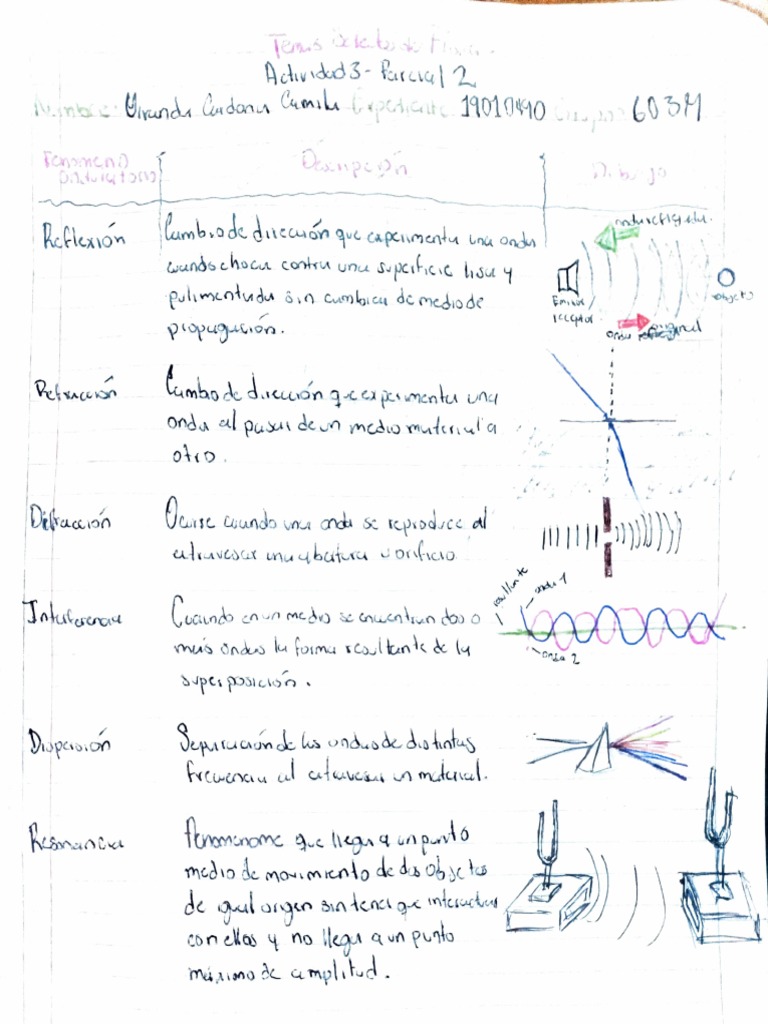 Temas Selectos de Física.
Actividad 3 - Parcial 2
Nombre: Miranda Cardona Camila Expediente 19010490 Grupo: 603M
Fenomeno Ondulatorio Descripción Dibujo
Reflexión
Cambio de dirección que experimenta una onda
cuando choca contra una superficie lisa y
pulimentada sin cambiar de medio de
propagación.
onda reflejada.
Emisor
receptor
objeto
onda original
Refracción
Cambio de dirección que experimenta una
onda al pasar de un medio material a
otro.
Difracción
Ocurre cuando una onda se reproduce al
atravesar una abertura u orificio.
Interferencia
Cuando en un medio se encuentran dos o
más ondas la forma resultante de la
superposición.
resultante
onda 1
onda 2
Dispersión
Separación de las ondas de distintas
frecuencia al atravesar un material.
Resonancia
que llega a un punto
medio de movimiento de dos objetos
de igual origen sin tener que interactuar
con ellos y no llega a un punto
máximo de amplitud.